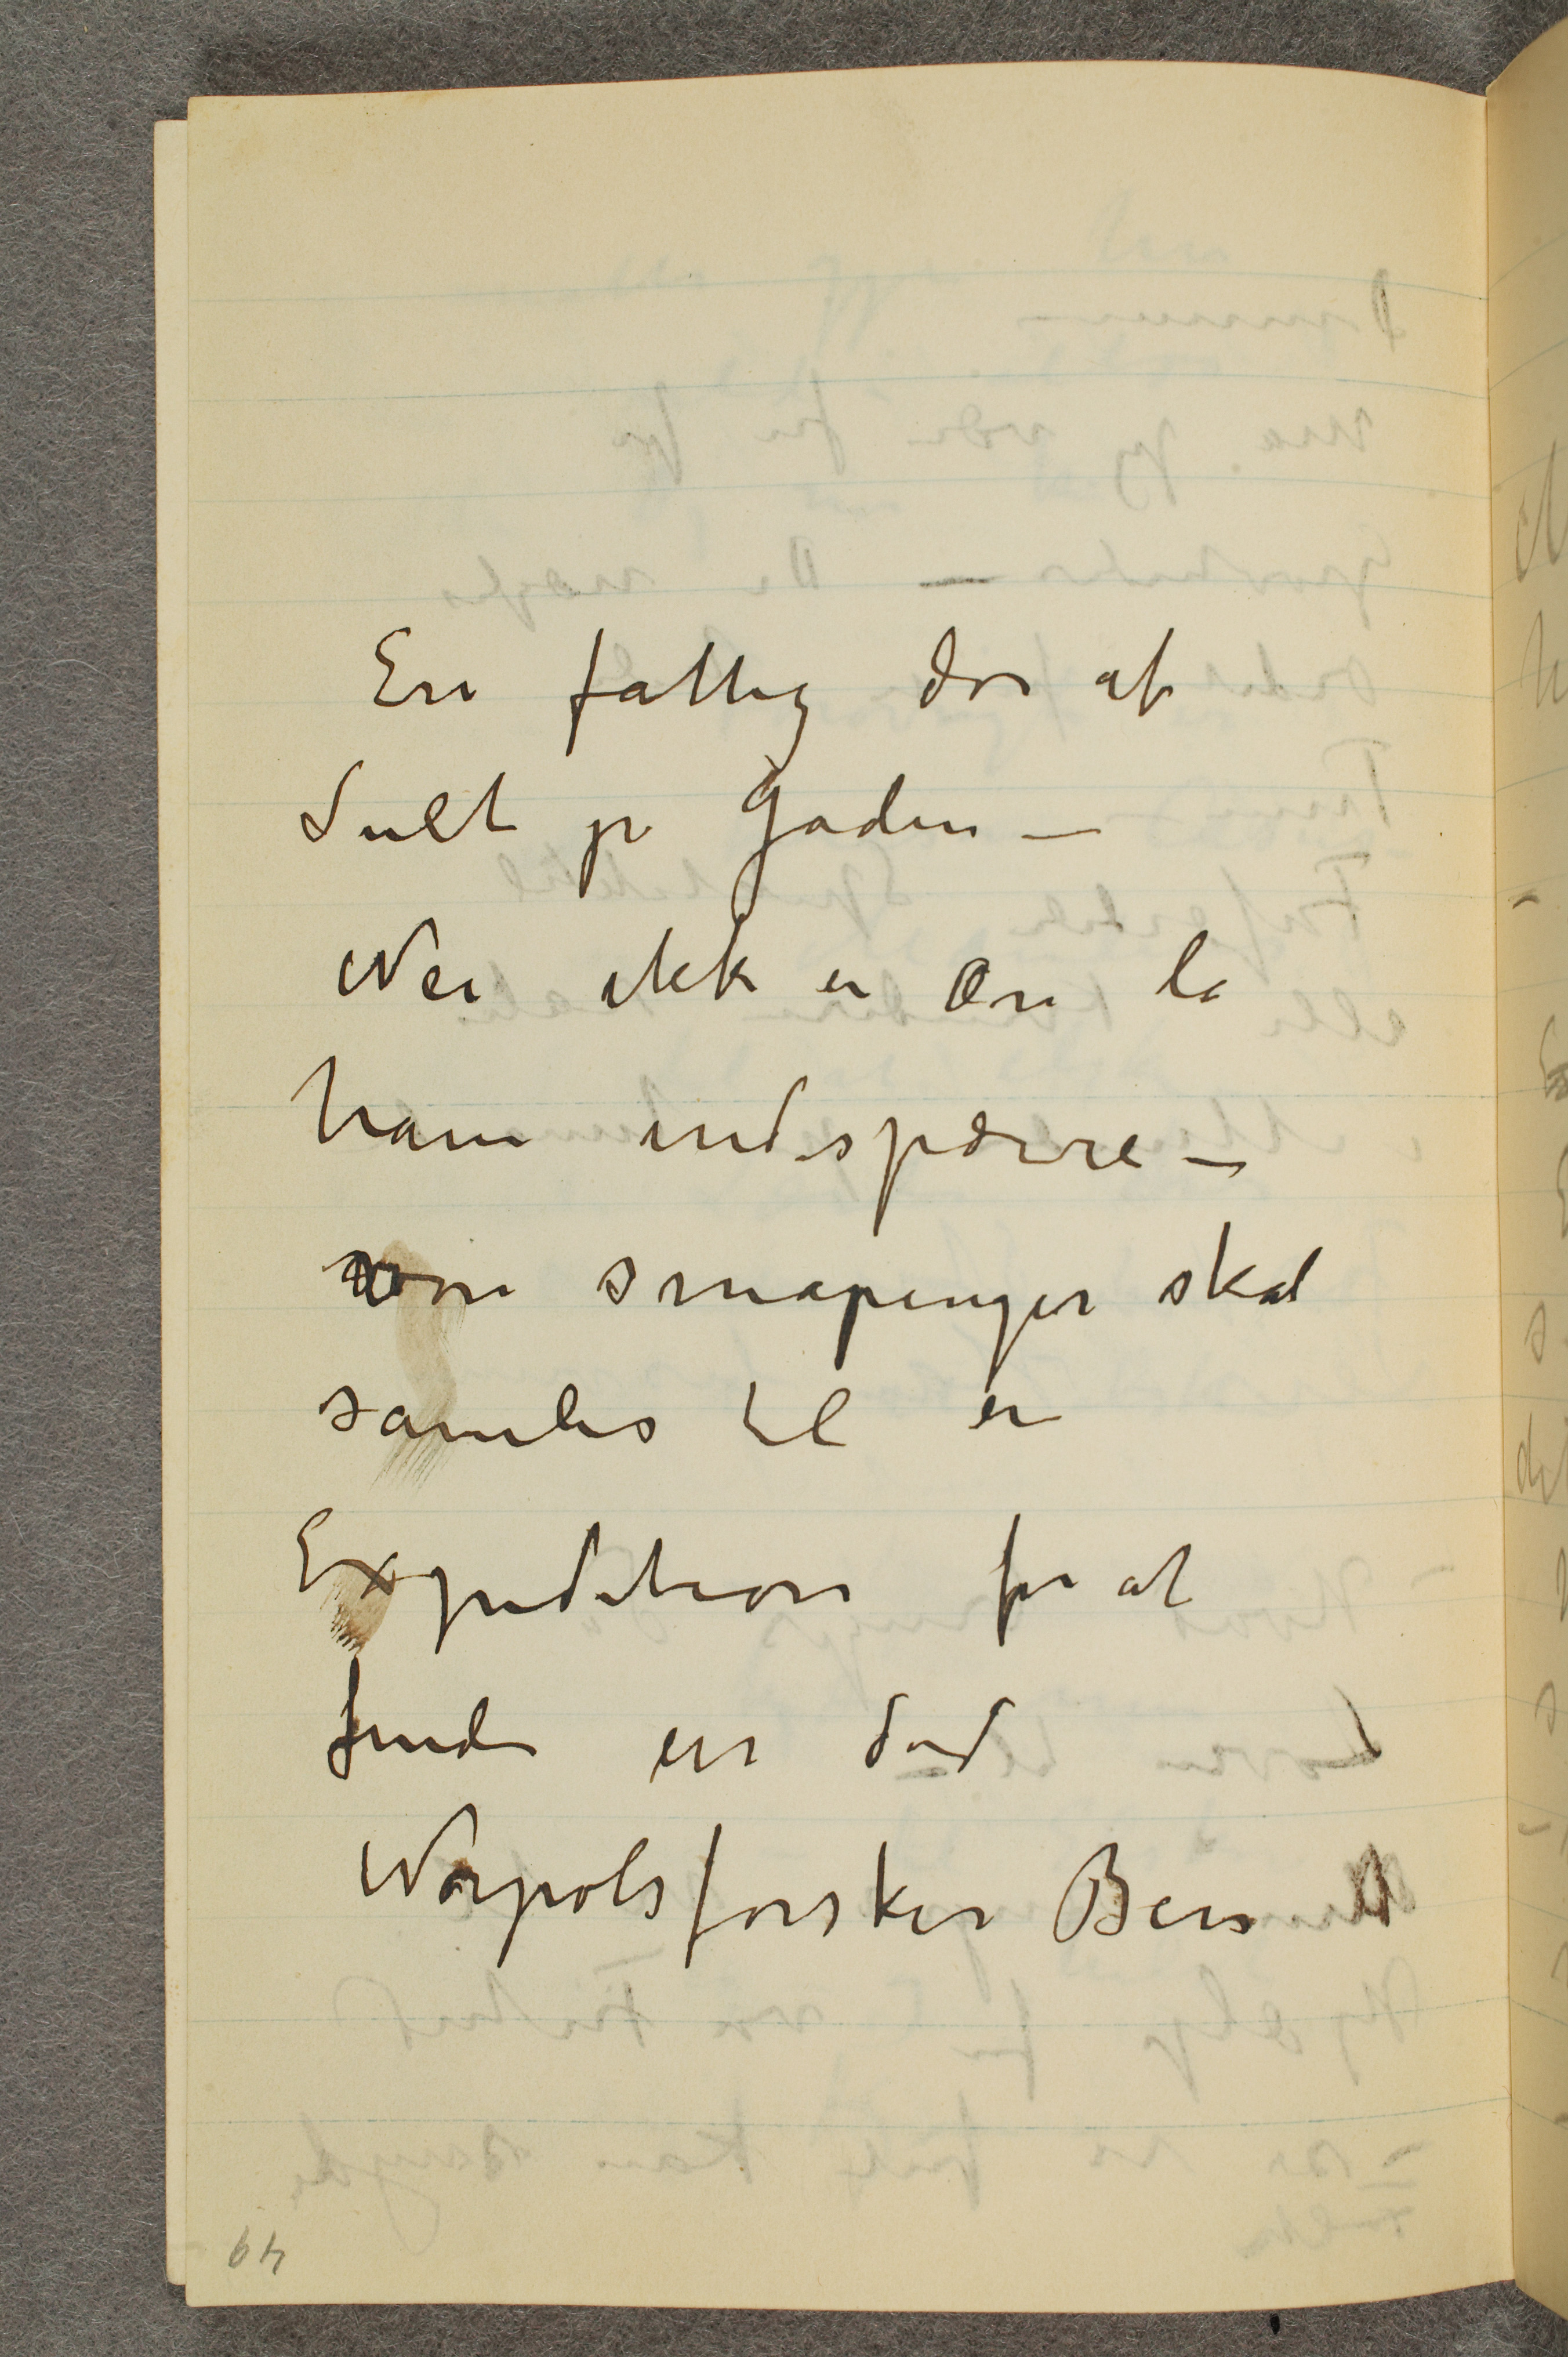 En fattig dør af
Sult på Gaden —
Nei ikke en Øre la
ham indspærre —
vore småpenger skal
samles til en
Expedition for at
finde en død
Norpolsforsker Ber
49